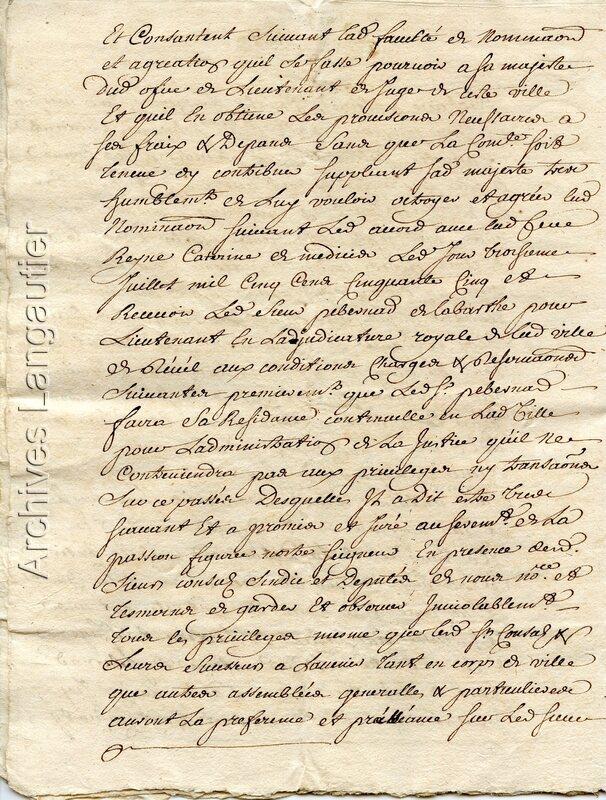 Et Consantent suivant lad. faculté de Nominaon
et agreation quil se fasse pourvoir a sa majeste
dud ofice de Lieutenant de Juge de cete ville
Et quil En obtiene Les provisions Neessaires a
ses fraix & Depans sans que La Com.té soit
tenue dy contribuer suppliant sad majeste tres
humblem.t de Luy vouloir octroyer et agréer lad
Nominaon suivant Led accord avec lad feue
Reyne Caterine de medicis Led Jour troisieme
Juillet mil cinq cens cinquante cinq et
Recevoir Led sieur pebernad de labarthe pour
Lieutenant En Ladjudicature royale de lad ville
de Réüél aux conditions charges & Reservaons
suivantes premierem.t que Led s.r pebernad
faira sa Residance continuelle en Lad Ville
pour Ladministration de La Justice quil Ne
Contreviendra pas aux privileges ny transaons
sur ce passées Desquelles Jl a Dit estre
suivant Et a promis et juré au serem.t de La
passion figure nostre seigneur En presence desd.
sieurs consulz sindic et Deputés de nous no.re et
tesmoins de garder Et observer Jnviolablem.t
tous les privileges mesme que lesd s.rs Consulz &
Leurs successeurs a Lavenir tant en corps de ville
que autres assemblées generalles & particulieres
auront La preference et sur Led sieur
Archives Langautier